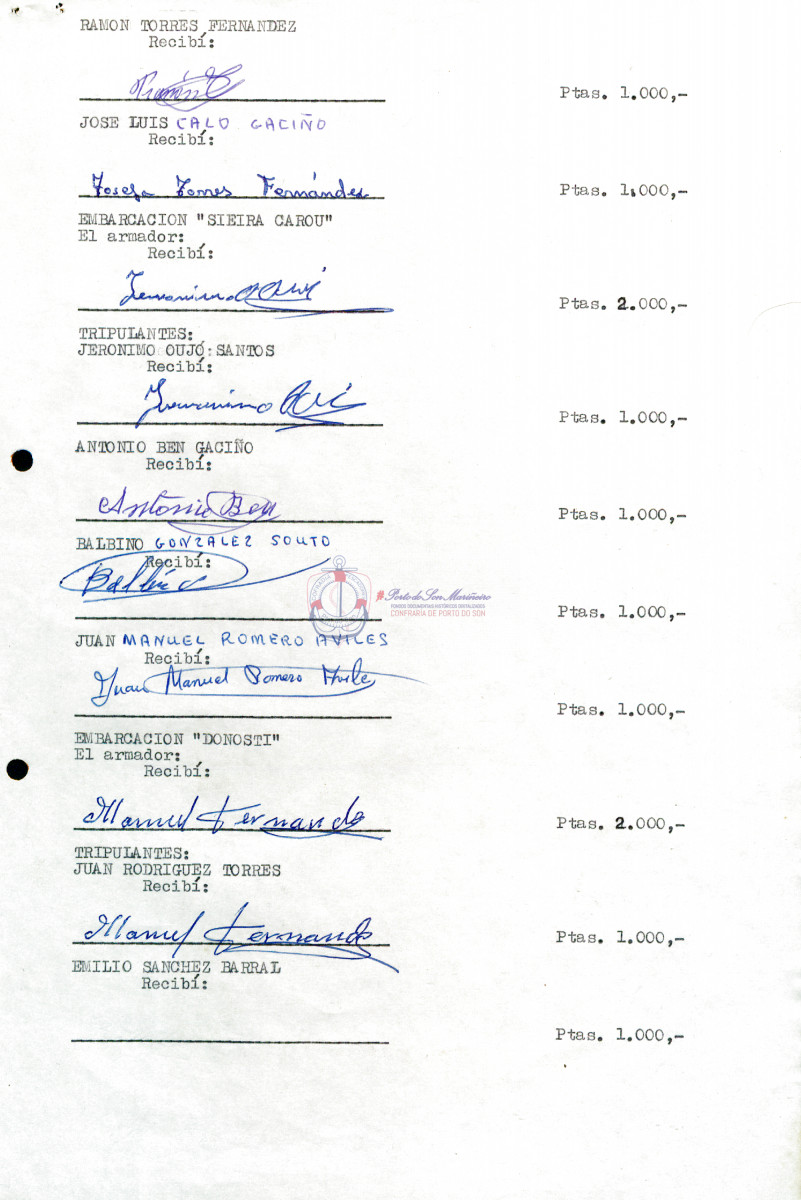 RAMON TORRES FERNANDEZ
Recibí:
Ramón
Ptas. 1.000,-
JOSE LUIS CALO GACIÑO
Recibí:
Josefa Torres Fernández
Ptas. 1.000,-
EMBARCACION "SIEIRA CAROU"
El armador:
Recibí:
Jeronimo
Ptas. 2.000,-
TRIPULANTES:
JERONIMO OUJO SANTOS
Recibí:
Jeronimo
Ptas. 1.000,-
ANTONIO BEN GACIÑO
Recibí:
Antonio Ben
Ptas. 1.000,-
BALBINO GONZALEZ SOUTO
Recibí:
Balbino
Ptas. 1.000,-
Porto do Son Mariñeiro
CONFRARIA DE PORTO DO SON
JUAN MANUEL ROMERO AVILES
Recibí:
Juan Manuel Romero Avile
Ptas. 1.000,-
EMBARCACION "DONOSTI"
El armador:
Recibí:
Manuel Fernande
Ptas. 2.000,-
TRIPULANTES:
JUAN RODRIGUEZ TORRES
Recibí:
Manuel Fernande
Ptas. 1.000,-
EMILIO SANCHEZ BARRAL
Recibí:
Ptas. 1.000,-